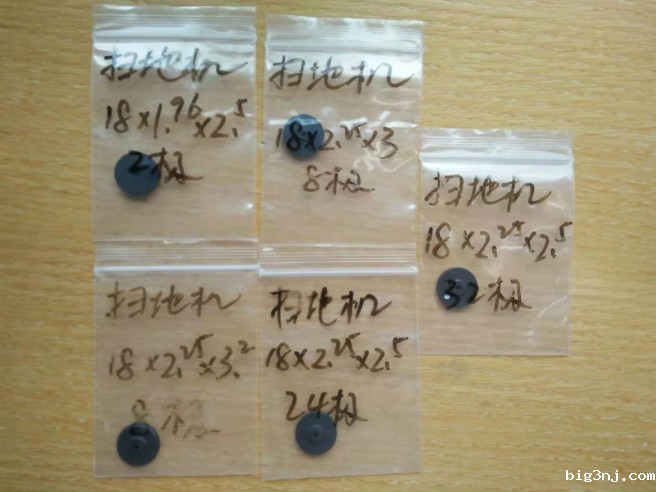 扫地机
18×1.96×2.5
2极
扫地机
18×2.25×3
8极
扫地机
18×2.25×2.5
32极
扫地机
18×2.25×3.2
8极
扫地机
18×2.25×2.5
24极
big3nj.com